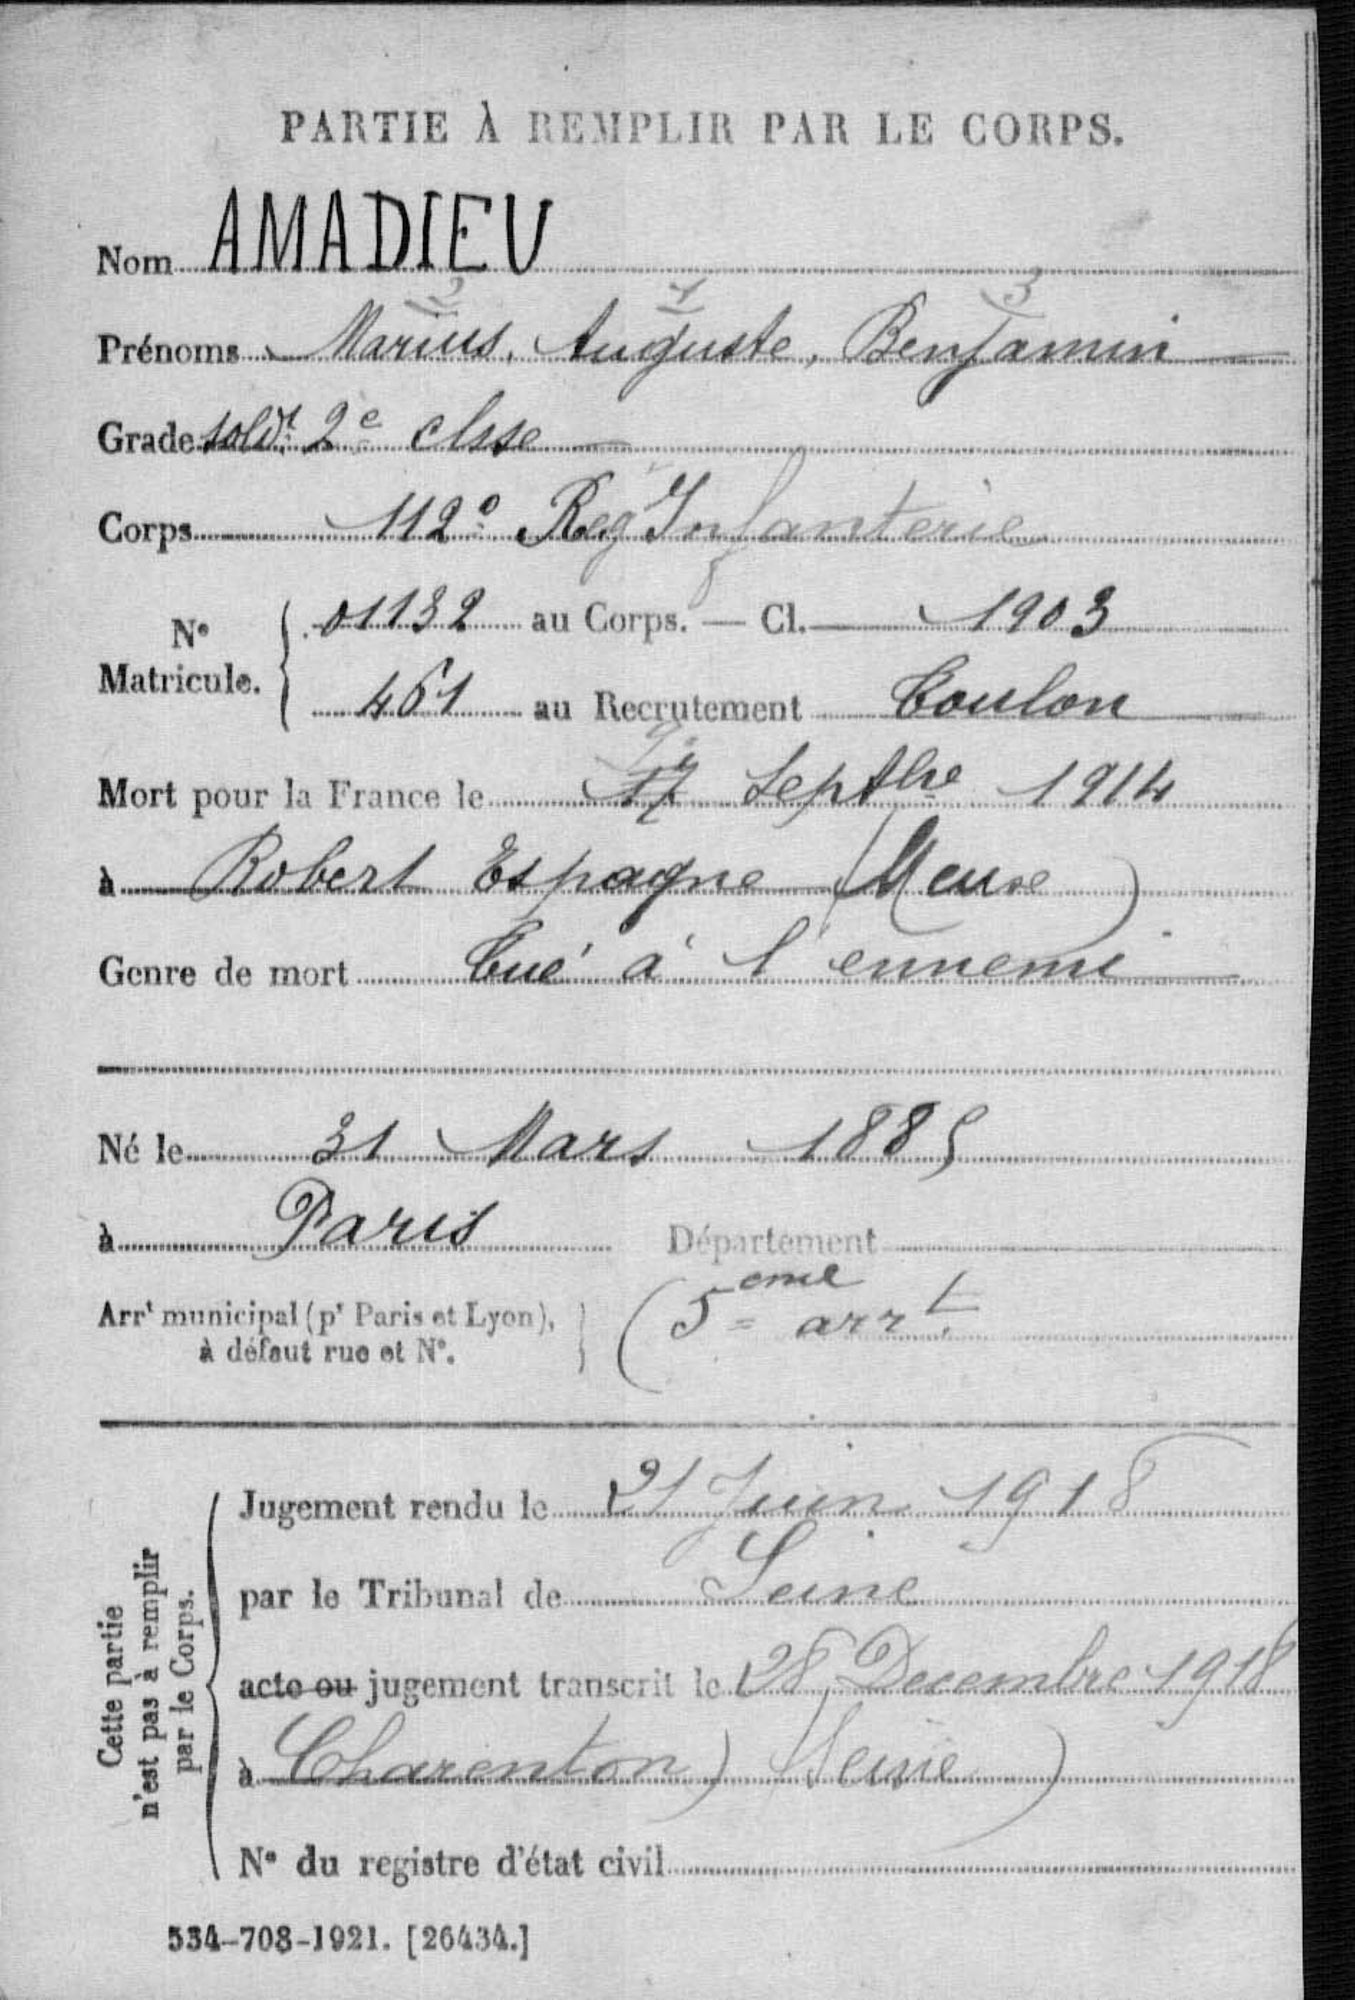 PARTIE À REMPLIR PAR LE CORPS.
Nom AMADIEU
2 1 3
Prénoms Marius, Auguste, Benjamin
Grade soldt 2e clsse
Corps 112e Reg Infanterie
No Matricule. 01132 au Corps. — Cl. 1903
461 au Recrutement Toulon
Mort pour la France le Septbre 1914
à Robert Espagne (Meuse)
Genre de mort Tué à l'ennemi
Né le 31 Mars 1885
à Paris Département
Arrt municipal (pr Paris et Lyon), à défaut rue et No. (5eme arrt.
Cette partie n'est pas à remplir par le Corps.
Jugement rendu le 21 Juin 1918
par le Tribunal de Seine
acte ou jugement transcrit le 28 Decembre 1918
à Charenton) (Seine)
No du registre d'état civil
534-708-1921. [26434.]